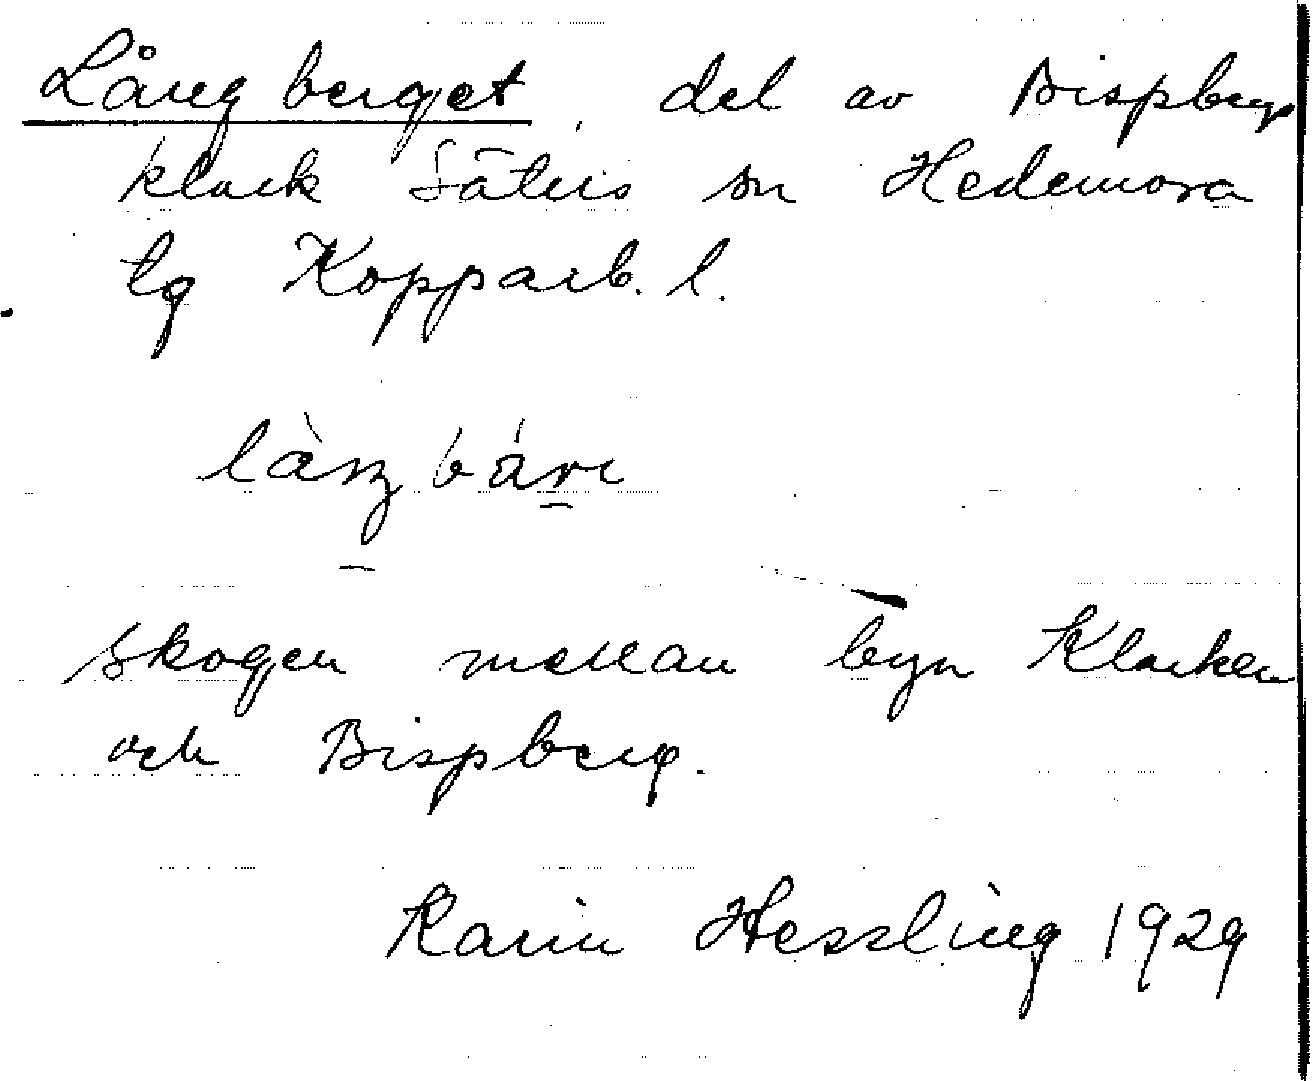 Långberget, del av Bispbergs
klack Säters sn Hedemora
tg Kopparb. l.
skogen mellan byn Klacken
och Bispberg.
Karin Hessling 1929